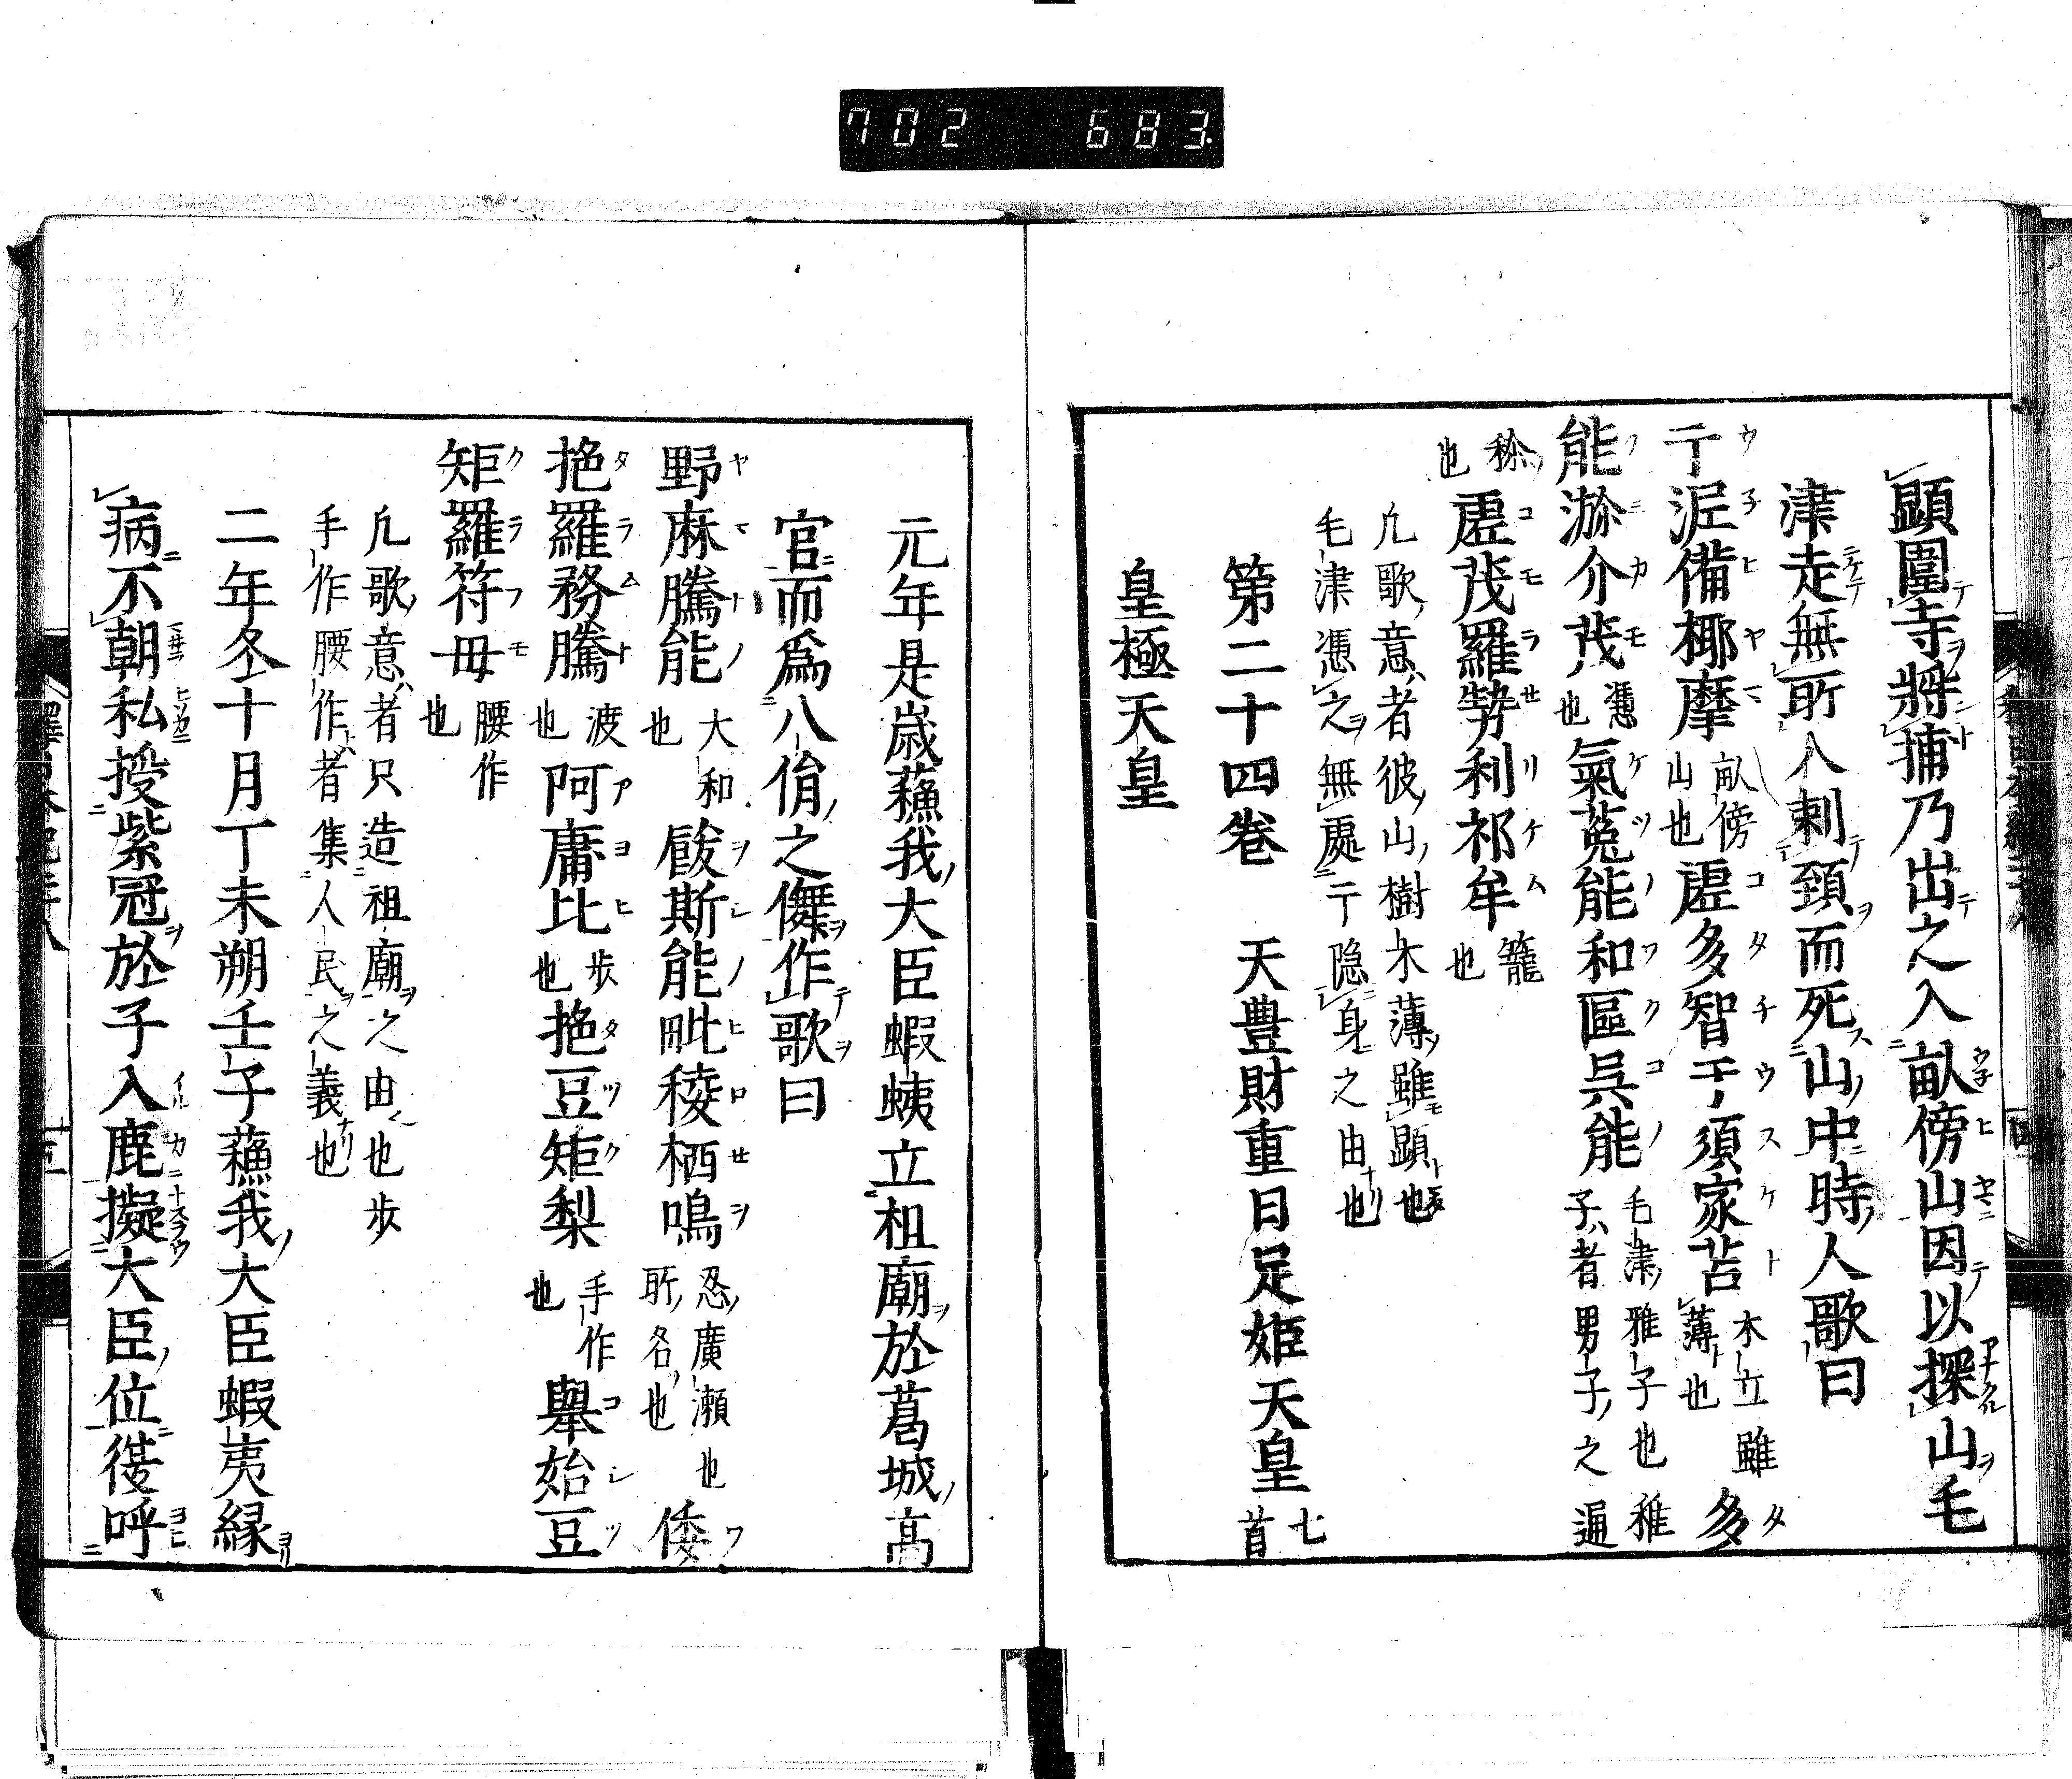 702 683
顕圍寺將捕乃出之入畝傍山因以探山毛
津走無所入刺頚而死山中時人歌曰
于泥備椰摩 畝傍山也 虚多智于須家苫 木立雖薄也 多
能濔介茂 憑也 氣菟能和區呉能 毛津雅子也稚子者男子之通
稱也 虚茂羅勢利祁牟 籠也
凡歌意者彼山樹木薄雖顕也
毛津憑之無處于隠身之由也
第二十四巻 天豊財重日足姫天皇 七首
皇極天皇
元年是歳蘓我大臣蝦蛦立祖廟於葛城高
官而為八佾之儛作歌曰
野麻騰能 大和也 飫斯能毗稜栖鳴 忍廣瀬也所名也 倭
拖羅務騰 渡也 阿庸比 歩也 拖豆矩梨 手作也 舉始豆
矩羅符毋 腰作也
凡歌意者只造祖廟之由也歩
手作腰作者集人民之義也
二年冬十月丁未朔壬子蘓我大臣蝦夷縁
病不朝私授紫冠於子入鹿擬大臣位復呼